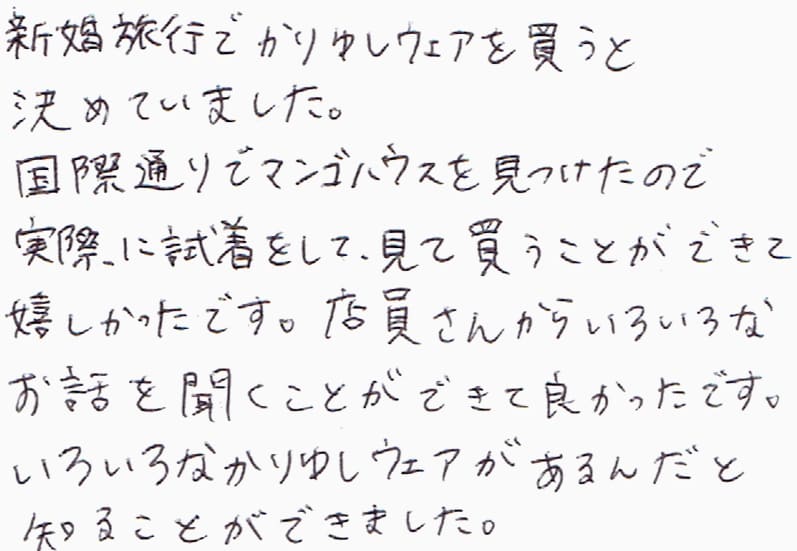 新婚旅行でかりゆしウェアを買うと
決めていました。
国際通りでマンゴハウスを見つけたので
実際に試着をして、見て買うことができて
嬉しかったです。店員さんからいろいろな
お話を聞くことができて良かったです。
いろいろなかりゆしウェアがあるんだと
知ることができました。